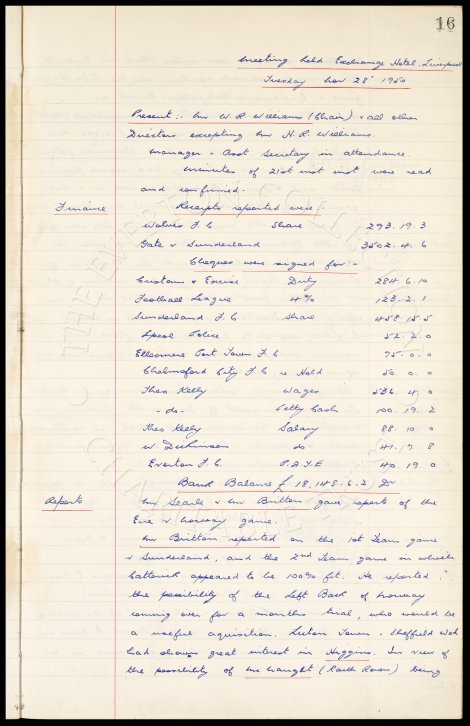 16
Meeting held Exchange Hotel, Liverpool
Tuesday Nov 28th 1950
Present:- Mr W. R. Williams (Chair) & all other
Directors excepting Mr H. R. Williams.
Manager & Asst Secretary in attendance.
Minutes of 21st inst were read
and confirmed.
Finance Receipts reported were:-
Wolves F.C Share 293. 19. 3
Gate v Sunderland 3502. 4. 6
Cheques were signed for:-
Customs & Excise Duty 284. 6. 10
Football League 4% 123. 2. 1
Sunderland F.C Share 458. 15. 5
Lpool Police 52. 2. 0
Ellesmere Port Town F.C 75. 0. 0
Chelmsford City F.C re Hold 50. 0. 0
Theo Kelly Wages 536. 4. 0
- do - Petty Cash 100. 19. 2
Theo Kelly Salary 88. 10. 0
W. Dickinson do 41. 19. 8
Everton F.C. P.A.Y.E 40. 19. 0
Bank Balance £ 18,148. 6. 2 Dr
Reports Mr Searle & Mr Britton gave report of the
Eire v Norway game.
Mr Britton reported on the 1st Team game
v Sunderland, and the 2nd Team game in which
Catterick appeared to be 100% fit. He reported
the possibility of the Left Back of Norway
coming over for a months trial, who would be
a useful acquisition. Luton Town, Sheffield Wed
had shown great interest in Higgins. In view of
the possibility of Mr (Raith Rovers) being
THE EVERTON COLLECTION
CHARITABLE TRUST